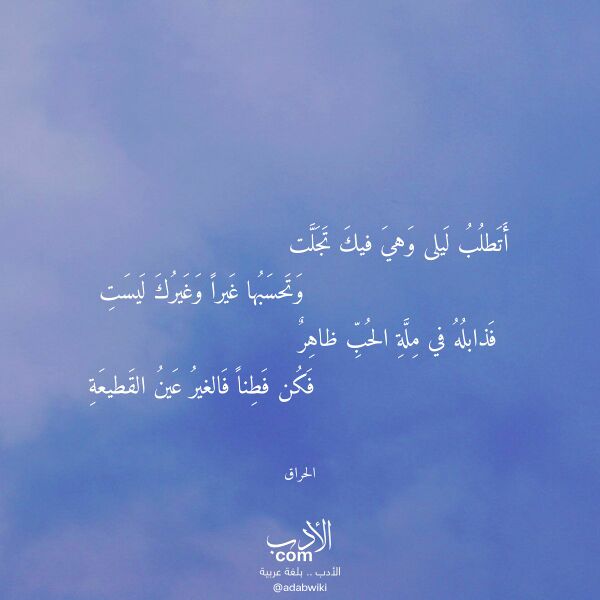 أَتَطلُبُ لَيلى وَهيَ فيكَ تَجَلَّت
وَتَحسَبُها غَيراً وَغَيرُكَ لَيسَتِ
فَذابلُهُ في مِلَّةِ الحُبِّ ظاهِرٌ
فَكُن فَطِناً فَالغيرُ عَينُ القَطيعَةِ
الحراق
الأدب
com
الأدب .. بلغة عربية
@adabwiki